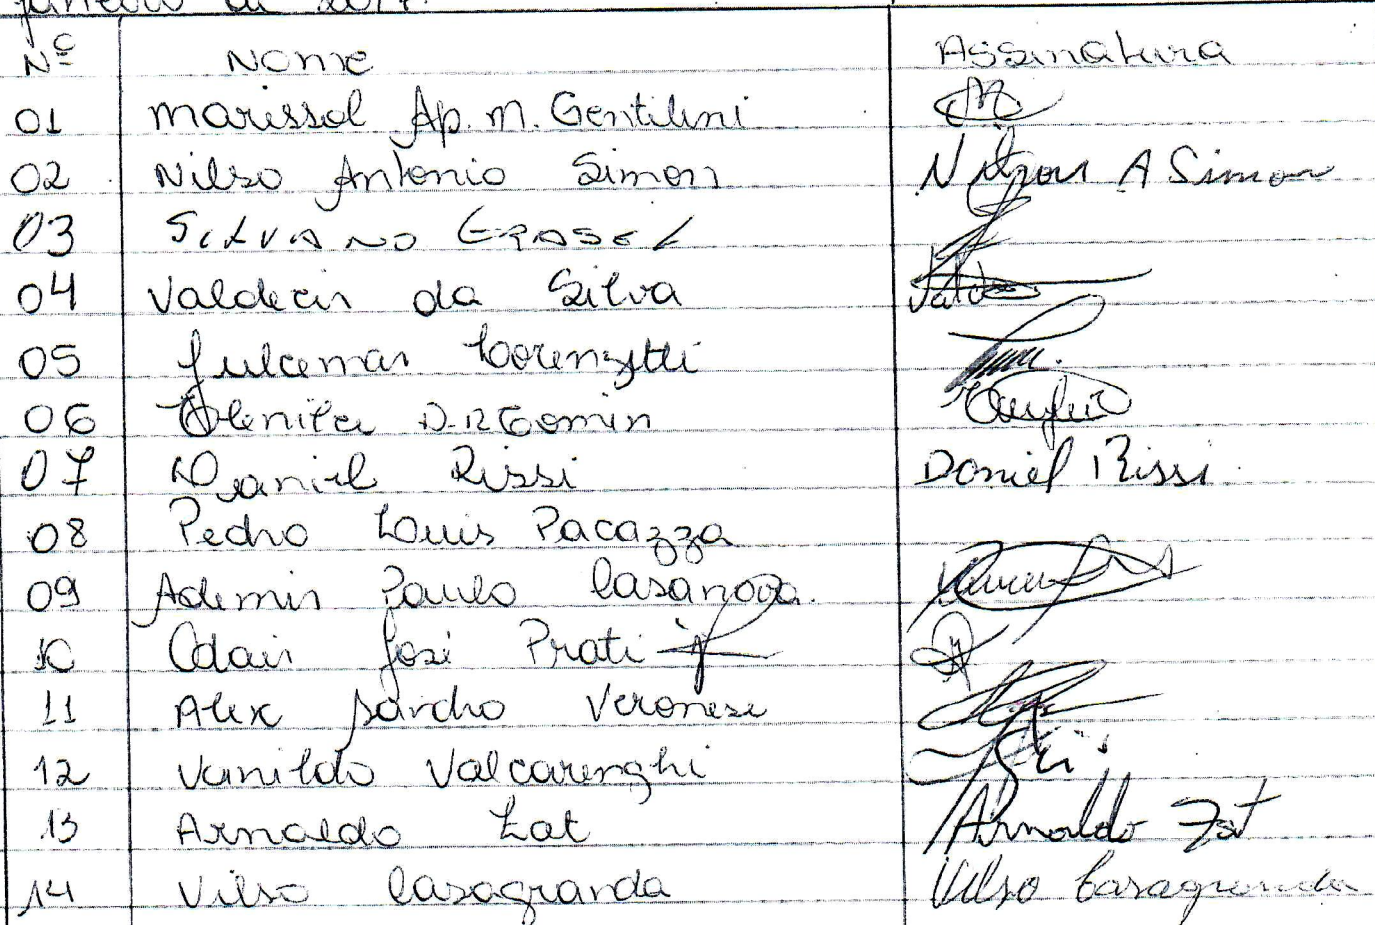 janeiro de 2017.
Nº Nome Assinatura
01 Marissol Ap. M. Gentilini
02 Nilso Antonio Simon Nilson A Simon
03 SILVANO GRASEL
04 Valdecir da Silva
05 Julcemar Lorenzetti
06 Clenita D.R Comin
07 Daniel Rissi Daniel Rissi
08 Pedro Louis Pacazza
09 Ademir Paulo Casanova.
10 Odair José Prati
11 Alex Sandro Veronese
12 Vanildo Valcarenghi
13 Arnaldo Zat Arnaldo Zat
14 Vilso Casagranda Vilso Casagranda